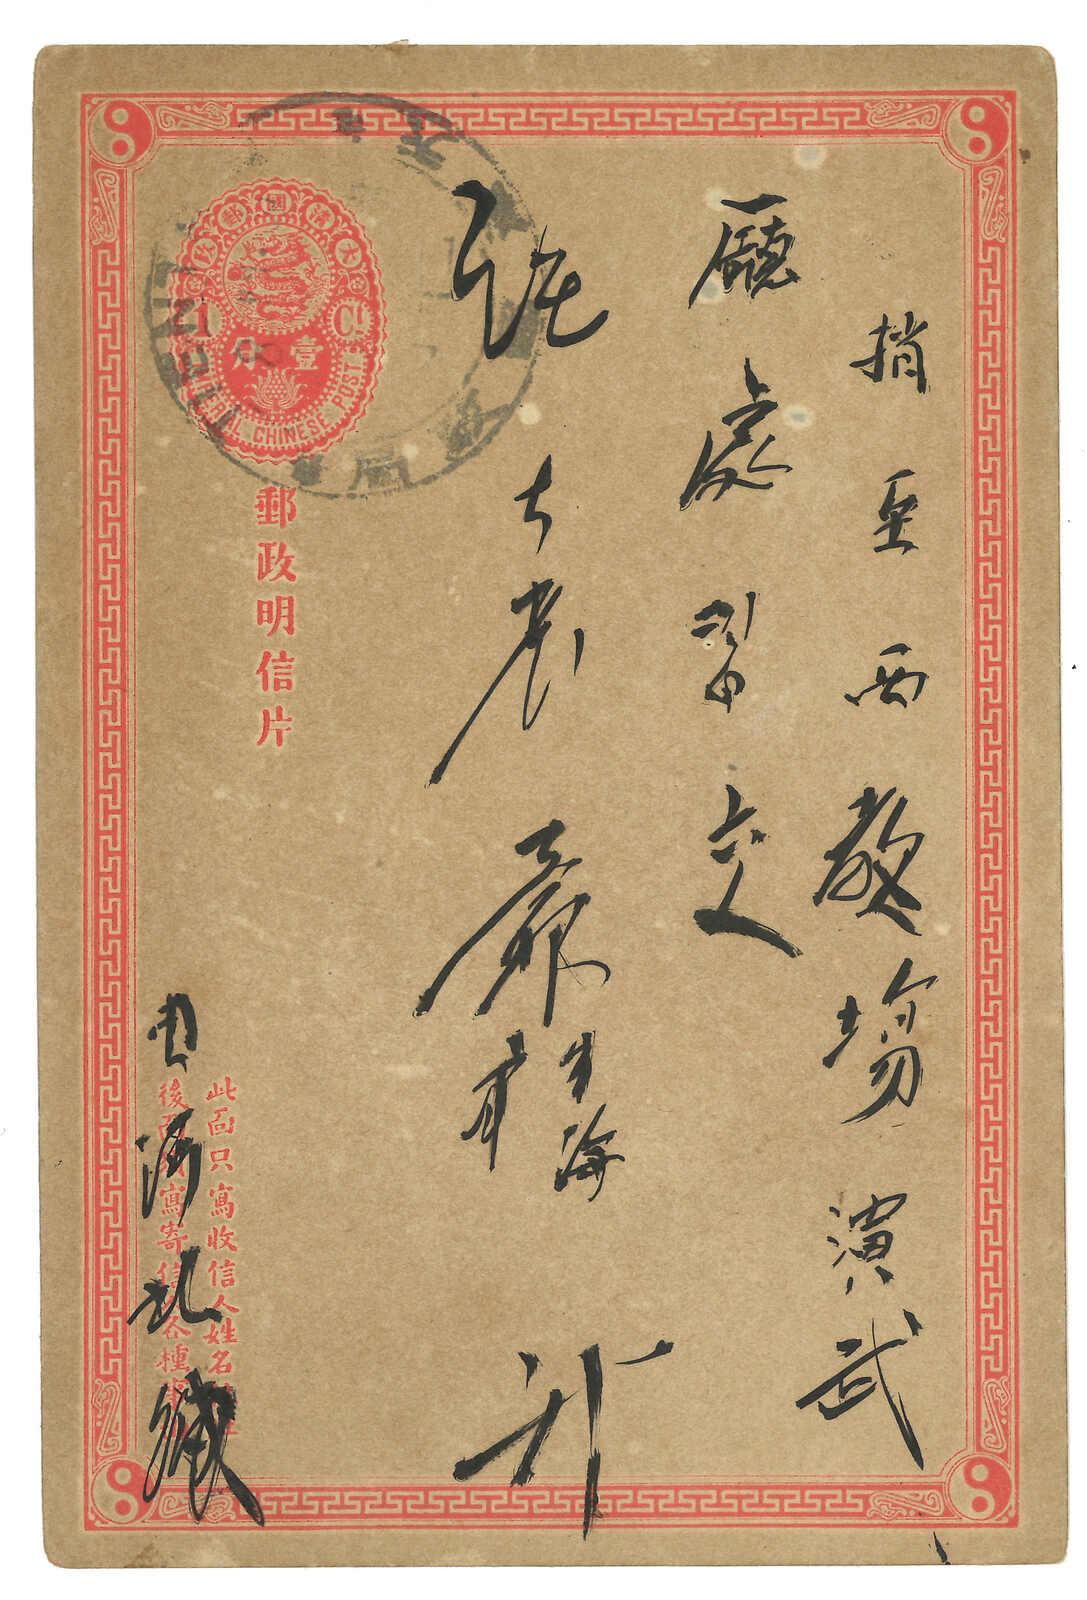 捎至西教場演武
廳處習交
張大老爺
生海
升
甲河北緘
大清國郵政
1 Ct
壹分
IMPERIAL CHINESE POST
郵政明信片
此面只寫收信人姓名
後面寫寄信各種
TIENT